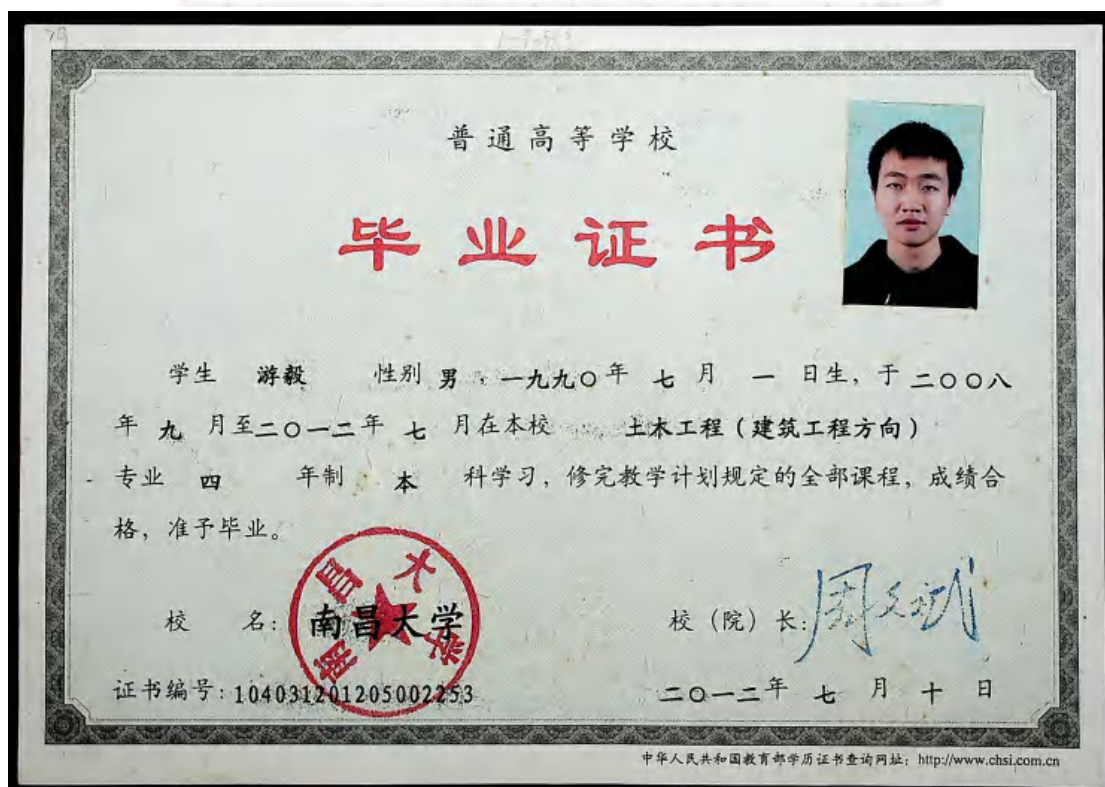 普通高等学校
毕业证书
学生 游毅 性别 男，一九九〇年 七 月 一 日生，于 二〇〇八
年 九 月至二〇一二年 七 月在本校 土木工程（建筑工程方向）
专业 四 年制 本 科学习，修完教学计划规定的全部课程，成绩合
格，准予毕业。
南昌大学
校 名：南昌大学 校（院）长：周文斌
证书编号：104031201205002253 二〇一二年 七 月 十 日
中华人民共和国教育部学历证书查询网址：http://www.chsi.com.cn